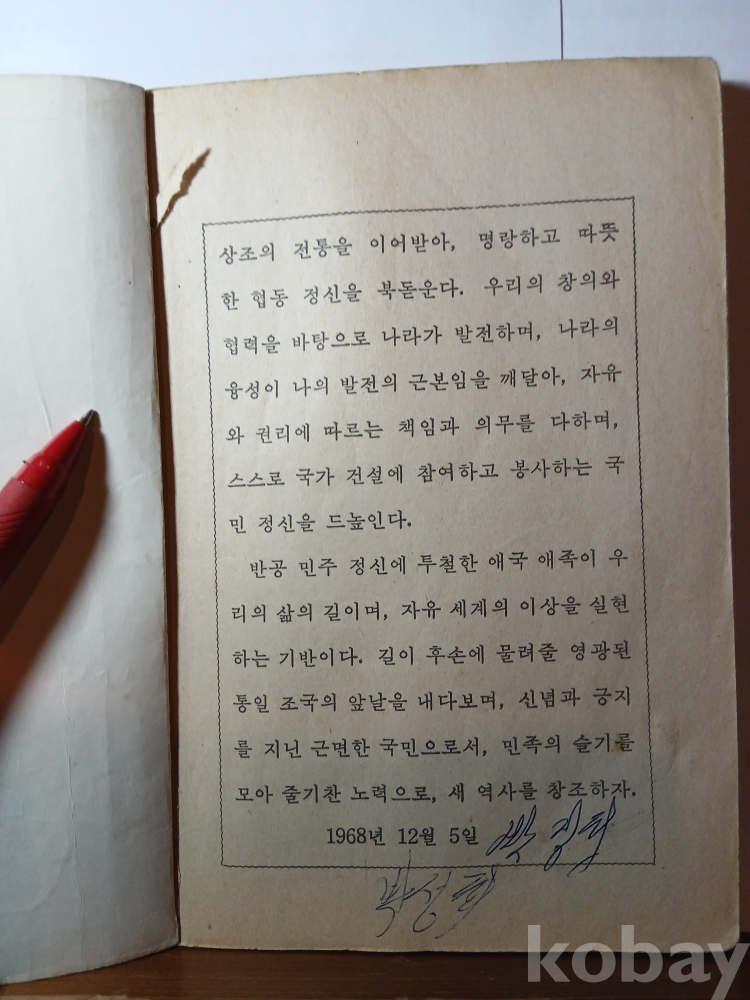 상조의 전통을 이어받아, 명랑하고 따뜻
한 협동 정신을 북돋운다. 우리의 창의와
협력을 바탕으로 나라가 발전하며, 나라의
융성이 나의 발전의 근본임을 깨달아, 자유
와 권리에 따르는 책임과 의무를 다하며,
스스로 국가 건설에 참여하고 봉사하는 국
민 정신을 드높인다.
반공 민주 정신에 투철한 애국 애족이 우
리의 삶의 길이며, 자유 세계의 이상을 실현
하는 기반이다. 길이 후손에 물려줄 영광된
통일 조국의 앞날을 내다보며, 신념과 긍지
를 지닌 근면한 국민으로서, 민족의 슬기를
모아 줄기찬 노력으로, 새 역사를 창조하자.
1968년 12월 5일
kobay